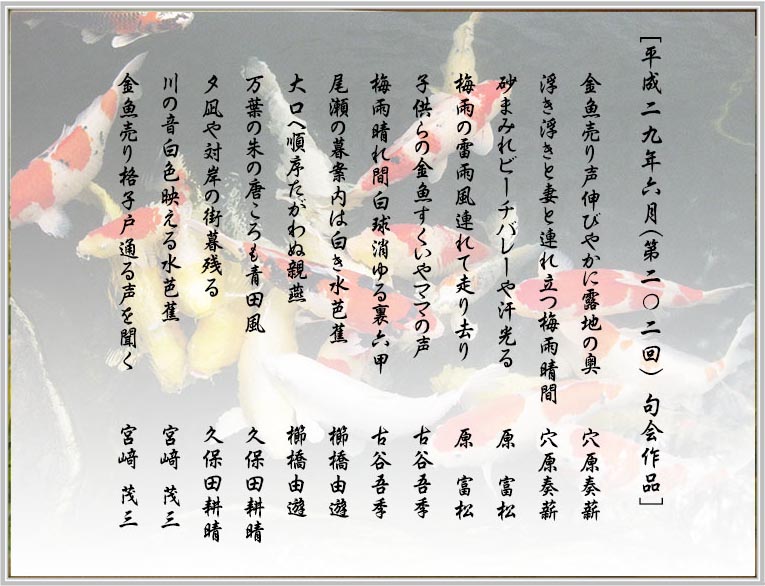 [平成二九年六月(第二〇二回) 句会作品]
金魚売り声伸びやかに露地の奥 穴原奏薪
浮き浮きと妻と連れ立つ梅雨晴間 穴原奏薪
砂まみれビーチバレーや汗光る 原 富松
梅雨の雷雨風連れて走り去り 原 富松
子供らの金魚すくいやママの声 古谷吾季
梅雨晴れ間白球消ゆる裏六甲 古谷吾季
尾瀬の暮案内は白き水芭蕉 櫛橋由遊
大口へ順序たがわぬ親燕 櫛橋由遊
万葉の朱の唐ころも青田風 久保田耕晴
夕凪や対岸の街暮残る 久保田耕晴
川の音白色映える水芭蕉 宮﨑 茂三
金魚売り格子戸通る声を聞く 宮﨑 茂三